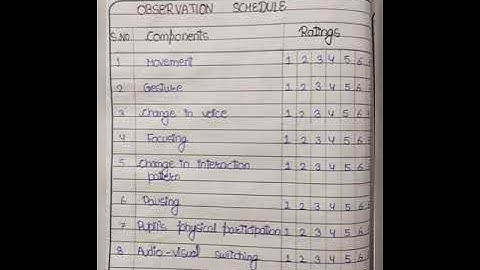 OBSERVATION SCHEDULE
S.NO. Components Ratings
1 Movement 1 2 3 4 5 6
2 Gesture 1 2 3 4 5 6
3 Change in voice 1 2 3 4 5 6
4 Focusing 1 2 3 4 5 6
5 Change in interaction 1 2 3 4 5 6
pattern
6 Pausing 1 2 3 4 5 6
7 Pupil's physical participation 1 2 3 4 5 6
8 Audio-visual switching 1 2 3 4 5 6